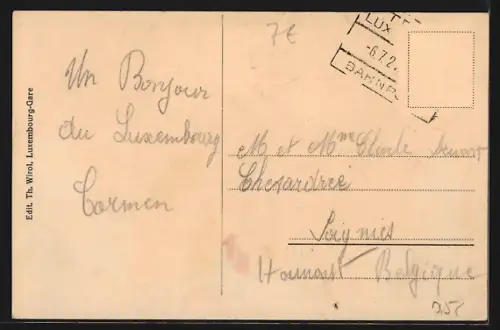 7€
LUX
-6.7.2
BAHNP
Un Bonjour
du Luxembourg
Carmen
M et Mme
Soignies
Hainaut Belgique
Edit. Th. Wirol, Luxembourg-Gare